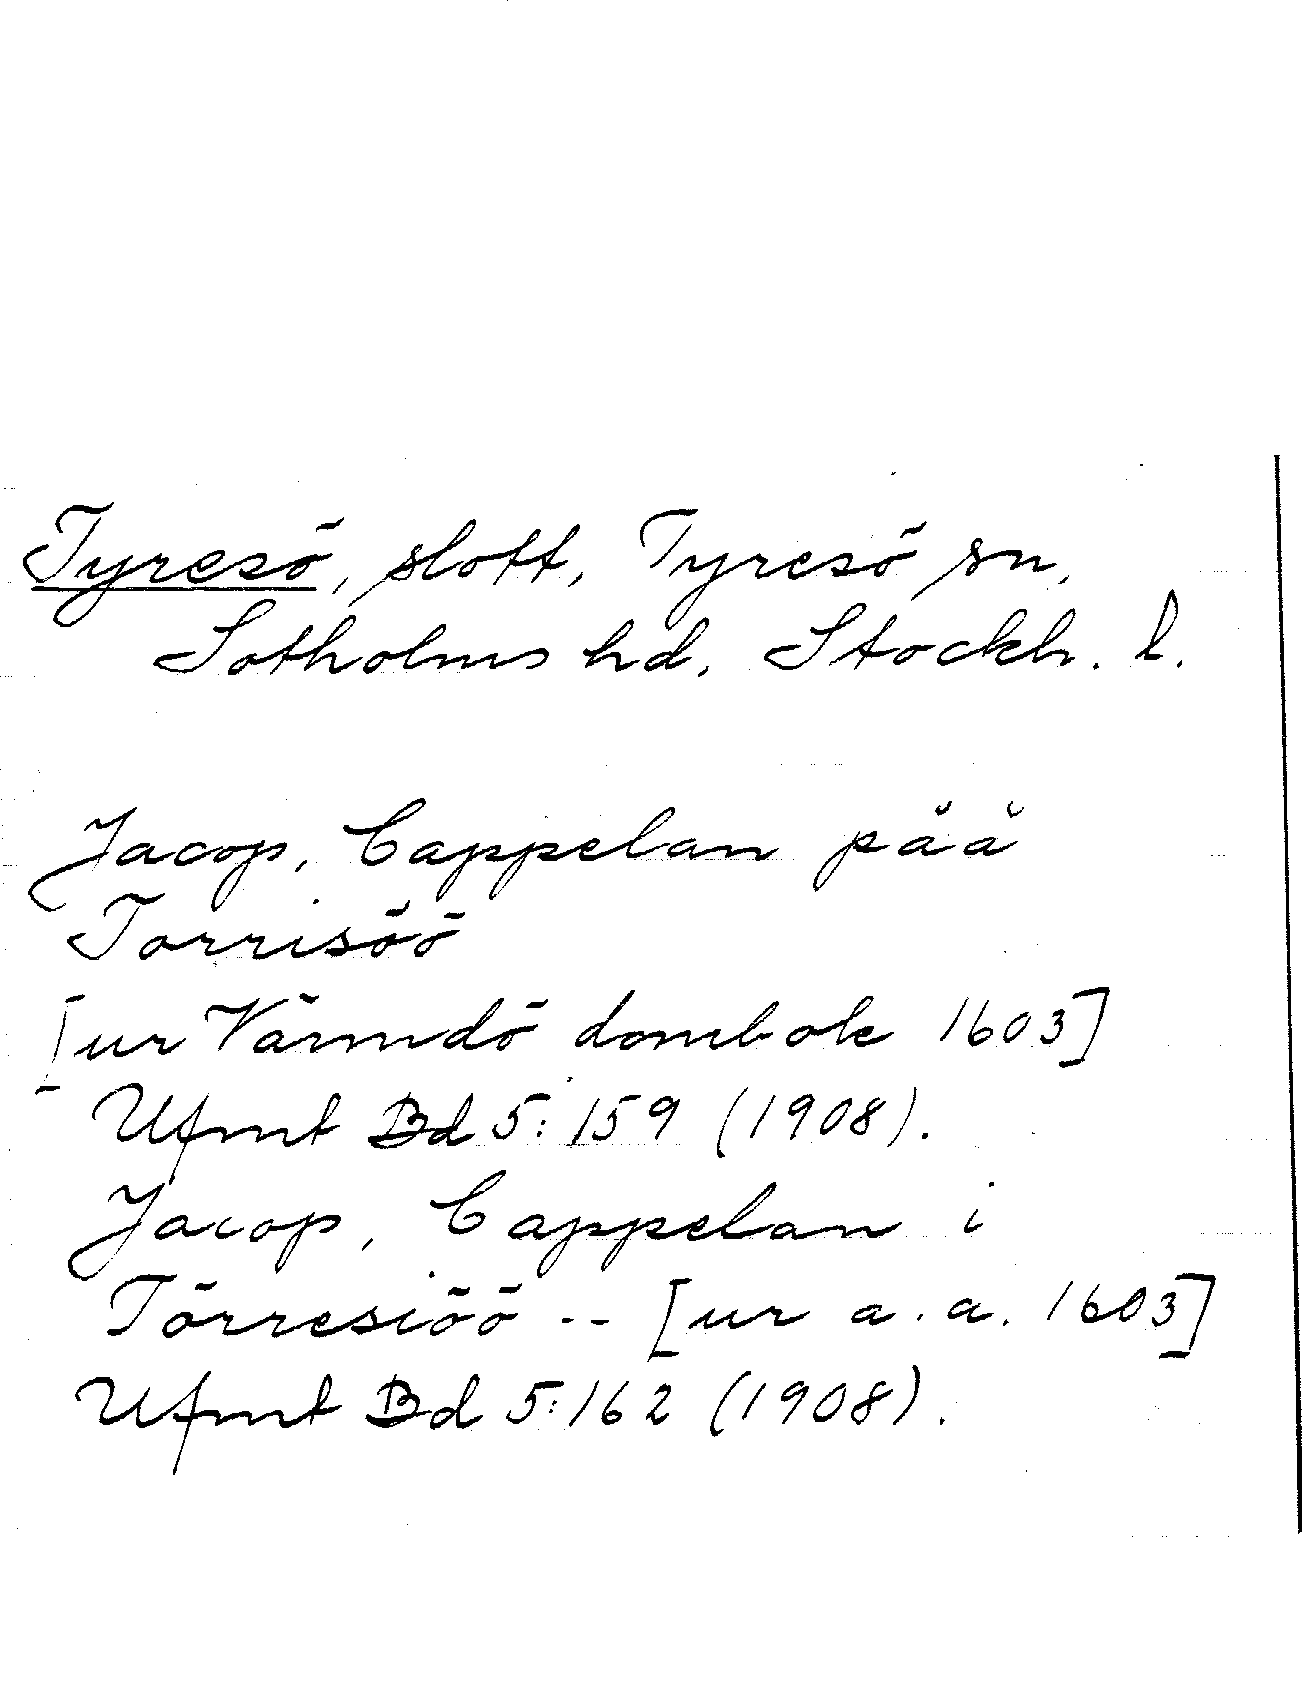 Tyresö, slott, Tyresö sn,
Sotholms hd, Stockh. l.
Jacop, Cappelan påå
Torrisöö
[ur Värmdö dombok 1603]
Ufmt Bd 5:159 (1908).
Jacop, Cappelan i
Törresiöö -- [ur a.a. 1603]
Ufmt Bd 5:162 (1908).